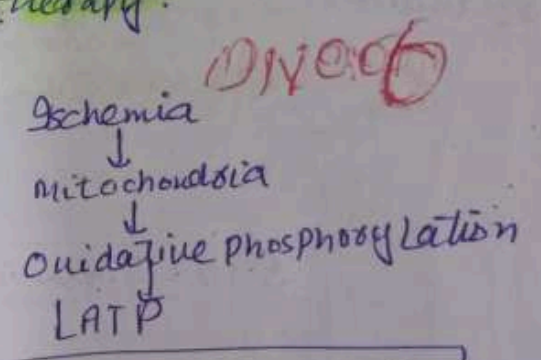 therapy.
Ischemia
↓
Mitochondria
↓
Oxidative phosphorylation
↓ATP